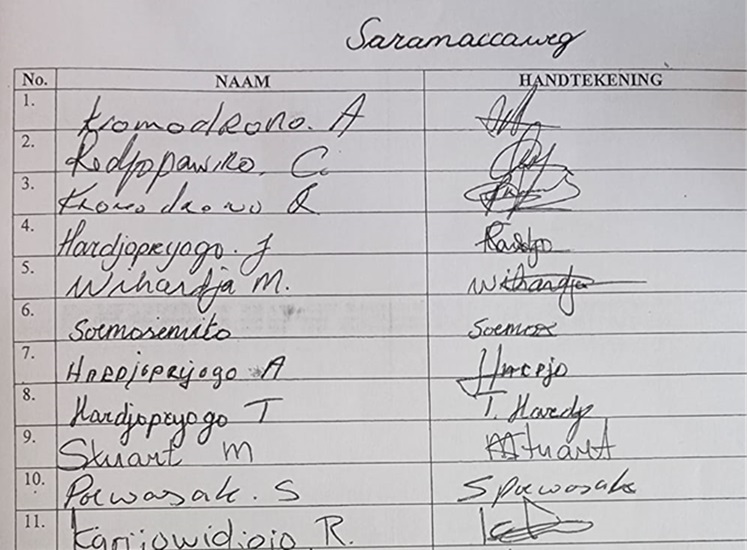 Saramaccaweg
No. NAAM HANDTEKENING
1. Kromodrono. A
2. Redjopawiro. C.
3. Kromodrono R
4. Hardjopryogo. J
5. Wihardja M. Wihardja
6. Soemosemito Soemos
7. Hardjoprijogo A Hardjo
8. Hardjopryogo T T. Hardjo
9. Stuart M MStuart
10. Poewasak. S S Poewosak
11. Karijowidjojo R.